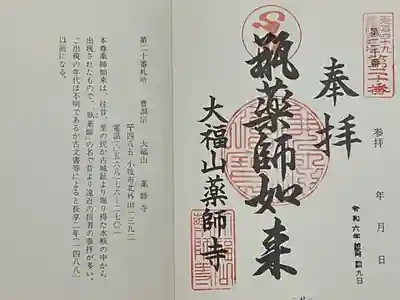 奉拝
参拝
年
月
日
令和六年
九日
瓶薬師如来
大福山薬師寺
第二十番札所
曹洞宗 大福山 薬師寺
〒四八五 小牧市北外山一三九二
電話 〇五六八-七六-二二七〇
本尊薬師如来は、往昔、里の民が古城趾より掘り得た水瓶の中から
出現されたもので、「瓶薬師」の名で昔より遠近の信者の参拝が多い。
ご出現の年代は不明であるが古文書等によると長享二年(一四八八)
以前になる。